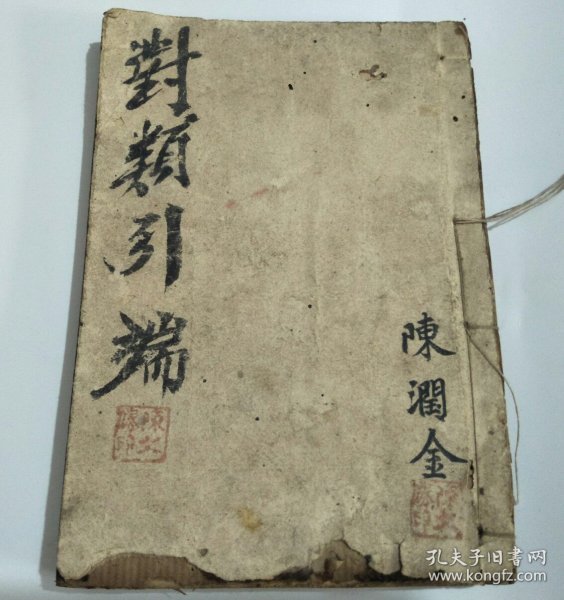 對類引端
陳潤金
孔夫子旧书网
www.kongfz.com